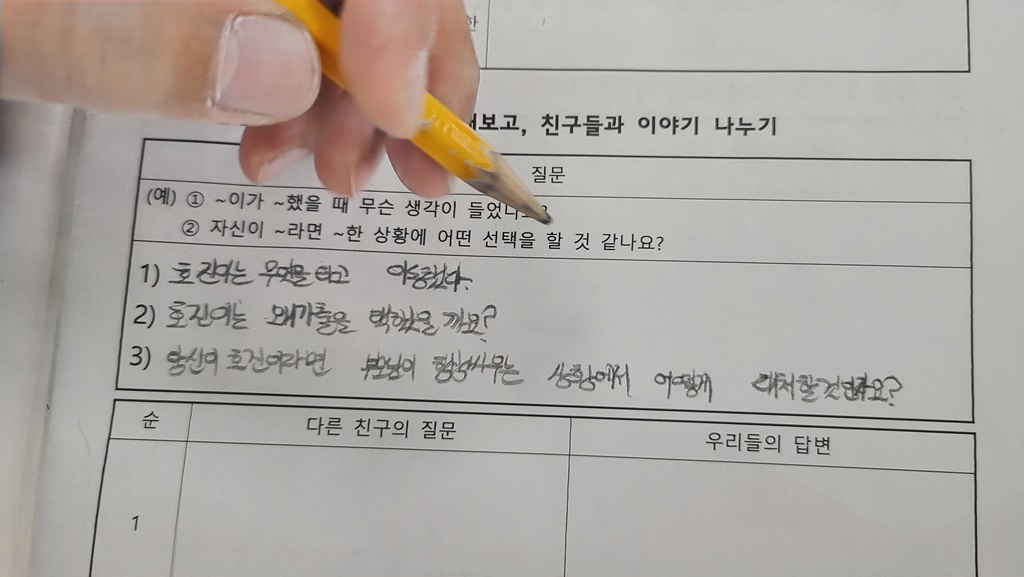 한
보고, 친구들과 이야기 나누기
질문
(예) ① ~이가 ~했을 때 무슨 생각이 들었나요?
② 자신이 ~라면 ~한 상황에 어떤 선택을 할 것 같나요?
1) 호진이는 무엇을 타고 이동했다.
2) 호진이는 왜 가출을 택했을까요?
3) 당신이 호진이라면 부모님이 항상 싸우는 상황에서 어떻게 대처할 것인가요?
순 다른 친구의 질문 우리들의 답변
1